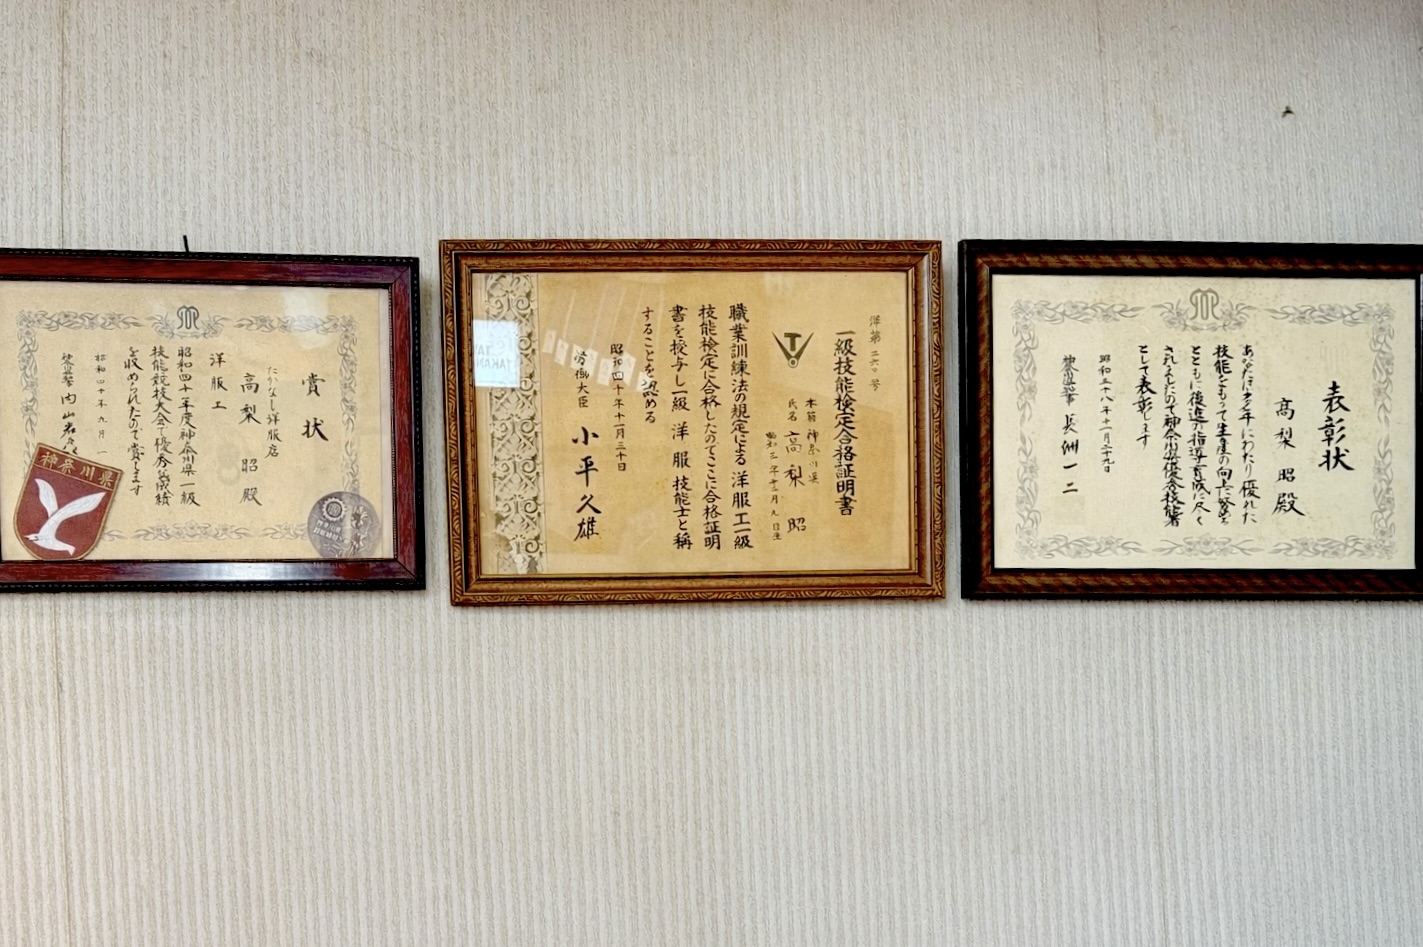 表彰状
高梨昭殿
あなたは多年にわたり優れた
技能をもって生産の向上に努める
とともに後進の指導育成に尽く
されましたので神奈川県優秀技能者
として表彰します
昭和五十八年十一月二十九日
神奈川県知事 長洲一二
洋第二六〇号
一級技能検定合格証明書
T
本籍 神奈川県
氏名 高梨 昭
昭和三年十二月九日生
職業訓練法の規定による 洋服工一級
技能検定に合格したのでここに合格証明
書を授与し一級 洋服 技能士と称
することを認める
昭和四十年十一月三十日
労働大臣 小平久雄
賞状
たかなし洋服店
高梨昭殿
洋服工
昭和四十年度神奈川県一級
技能競技大会で優秀な成績
を収められたので賞します
昭和四十年九月
神奈川県知事 内山岩太
神奈川県